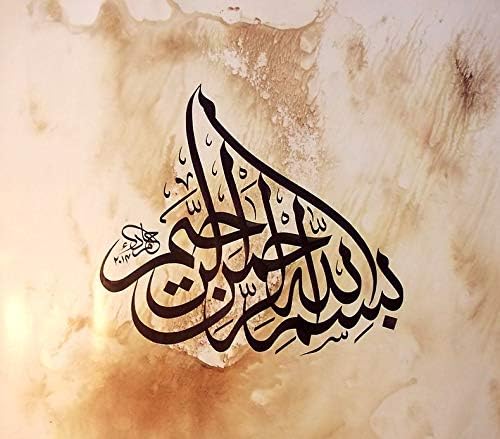 بسم الله الرحمن الرحيم
٢٠١٧